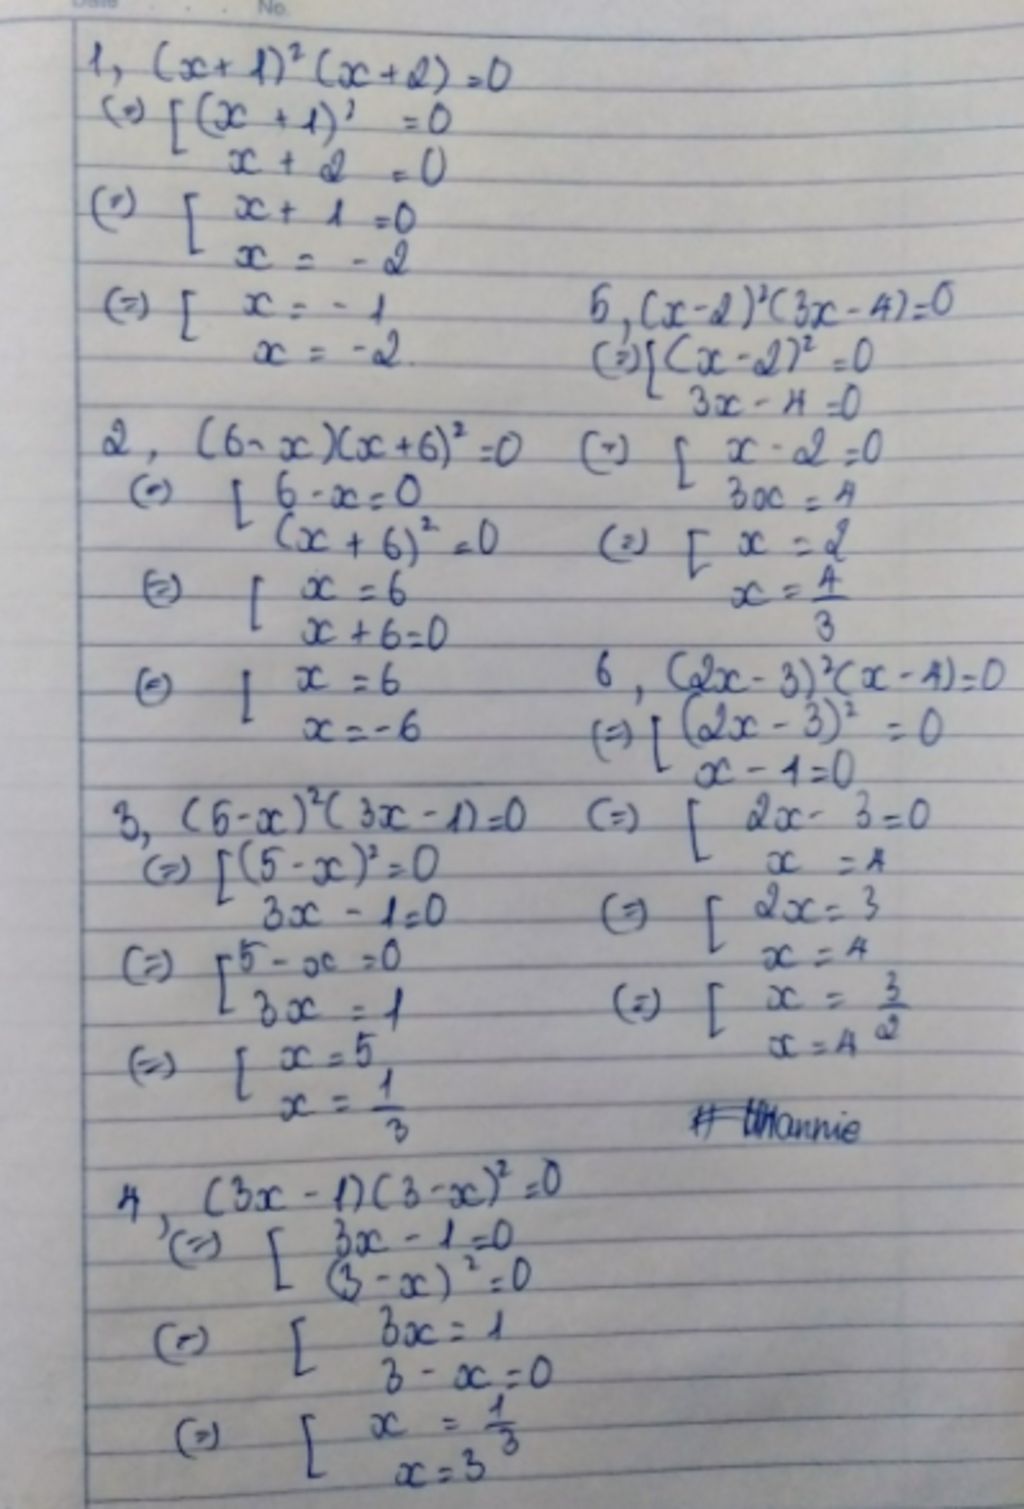 Date No.
1, (x+1)²(x+2)=0
(=) [ (x+1)² =0
x+2 =0
(=) [ x+1=0
x = -2
(=) [ x = -1
x = -2.
2, (6-x)(x+6)²=0
(=) [ 6-x=0
(x+6)²=0
(=) [ x=6
x+6=0
(=) [ x=6
x=-6
3, (5-x)²(3x-1)=0
(=) [ (5-x)²=0
3x-1=0
(=) [ 5-x=0
3x=1
(=) [ x=5
x=1/3
4, (3x-1)(3-x)²=0
(=) [ 3x-1=0
(3-x)²=0
(=) [ 3x=1
3-x=0
(=) [ x=1/3
x=3
5, (x-2)²(3x-4)=0
(=) [ (x-2)²=0
3x-4=0
(=) [ x-2=0
3x=4
(=) [ x=2
x=4/3
6, (2x-3)²(x-4)=0
(=) [ (2x-3)²=0
x-1=0
(=) [ 2x-3=0
x=4
(=) [ 2x=3
x=4
(=) [ x=3/2
x=4